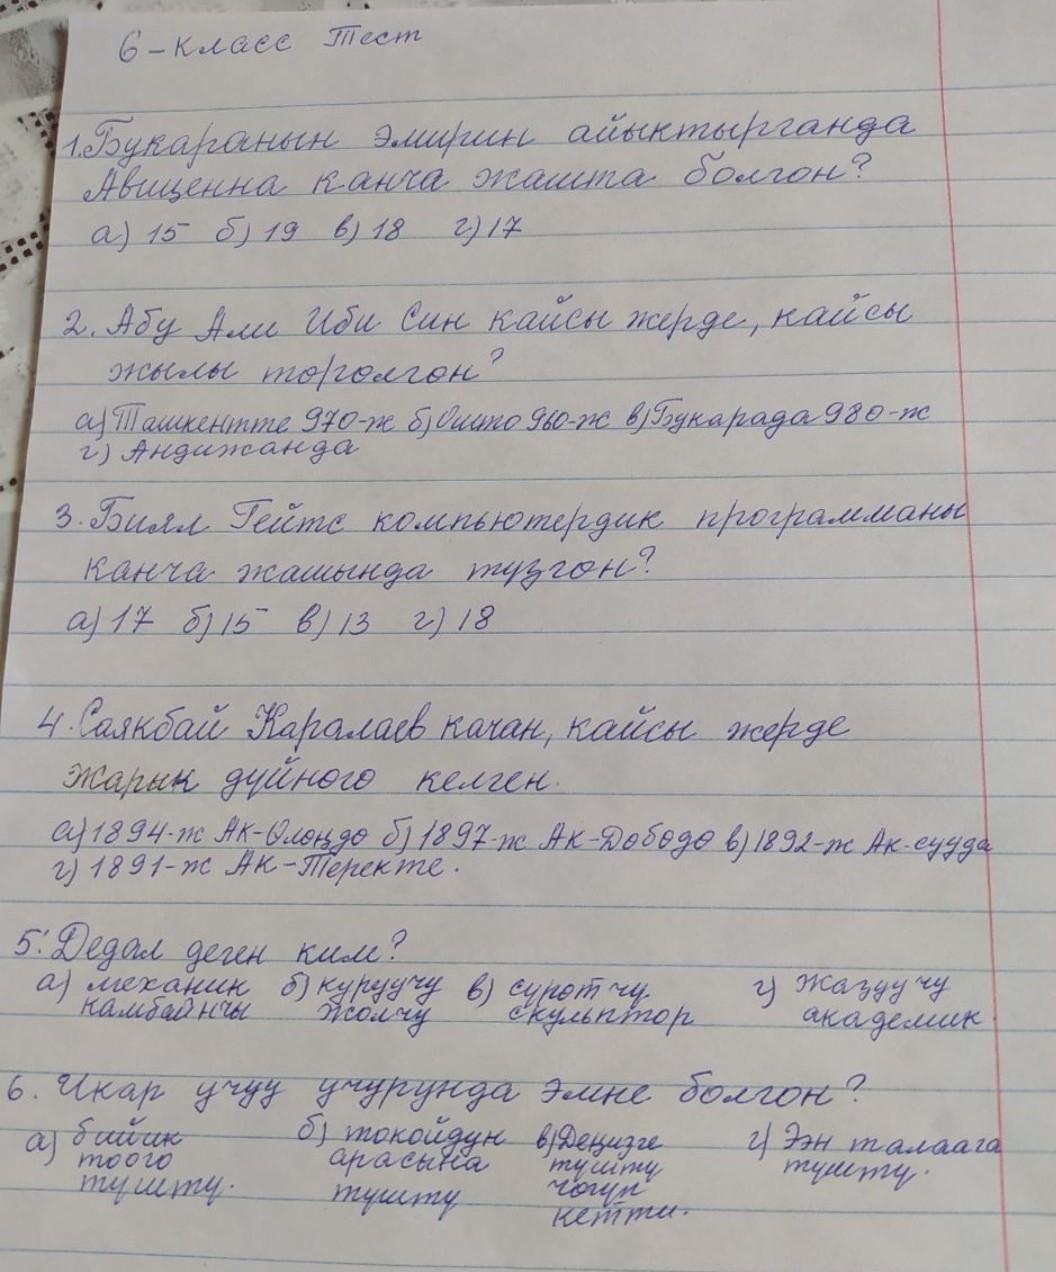 6-класс Тест
1. Букаранын эмирин айыктырганда
Авиценна канча жашта болгон?
а) 15 б) 19 в) 18 г) 17
2. Абу Али Ибн Син кайсы жерде, кайсы
жылы торолгон?
а) Ташкентте 970-ж б) Ошто 960-ж в) Букарада 980-ж
г) Андижанда
3. Билл Гейтс компьютердик программаны
канча жашында тузгон?
а) 17 б) 15 в) 13 г) 18
4. Саякбай Каралаев качан, кайсы жерде
жарык дуйного келген.
а) 1894-ж Ак-Олоңдо б) 1897-ж Ак-Дободо в) 1892-ж Ак-сууда
г) 1891-ж Ак-Теректе.
5. Дедал деген ким?
а) механик б) куруучу в) суротчу г) жазуучу
камбайнчы жолчу скульптор академик
6. Икар учуу учурунда эмне болгон?
а) бийик б) токойдун в) Деңизге г) Ээн талаага
тоого арасына тушту тушту.
тушту. тушту чогуп
кетти.